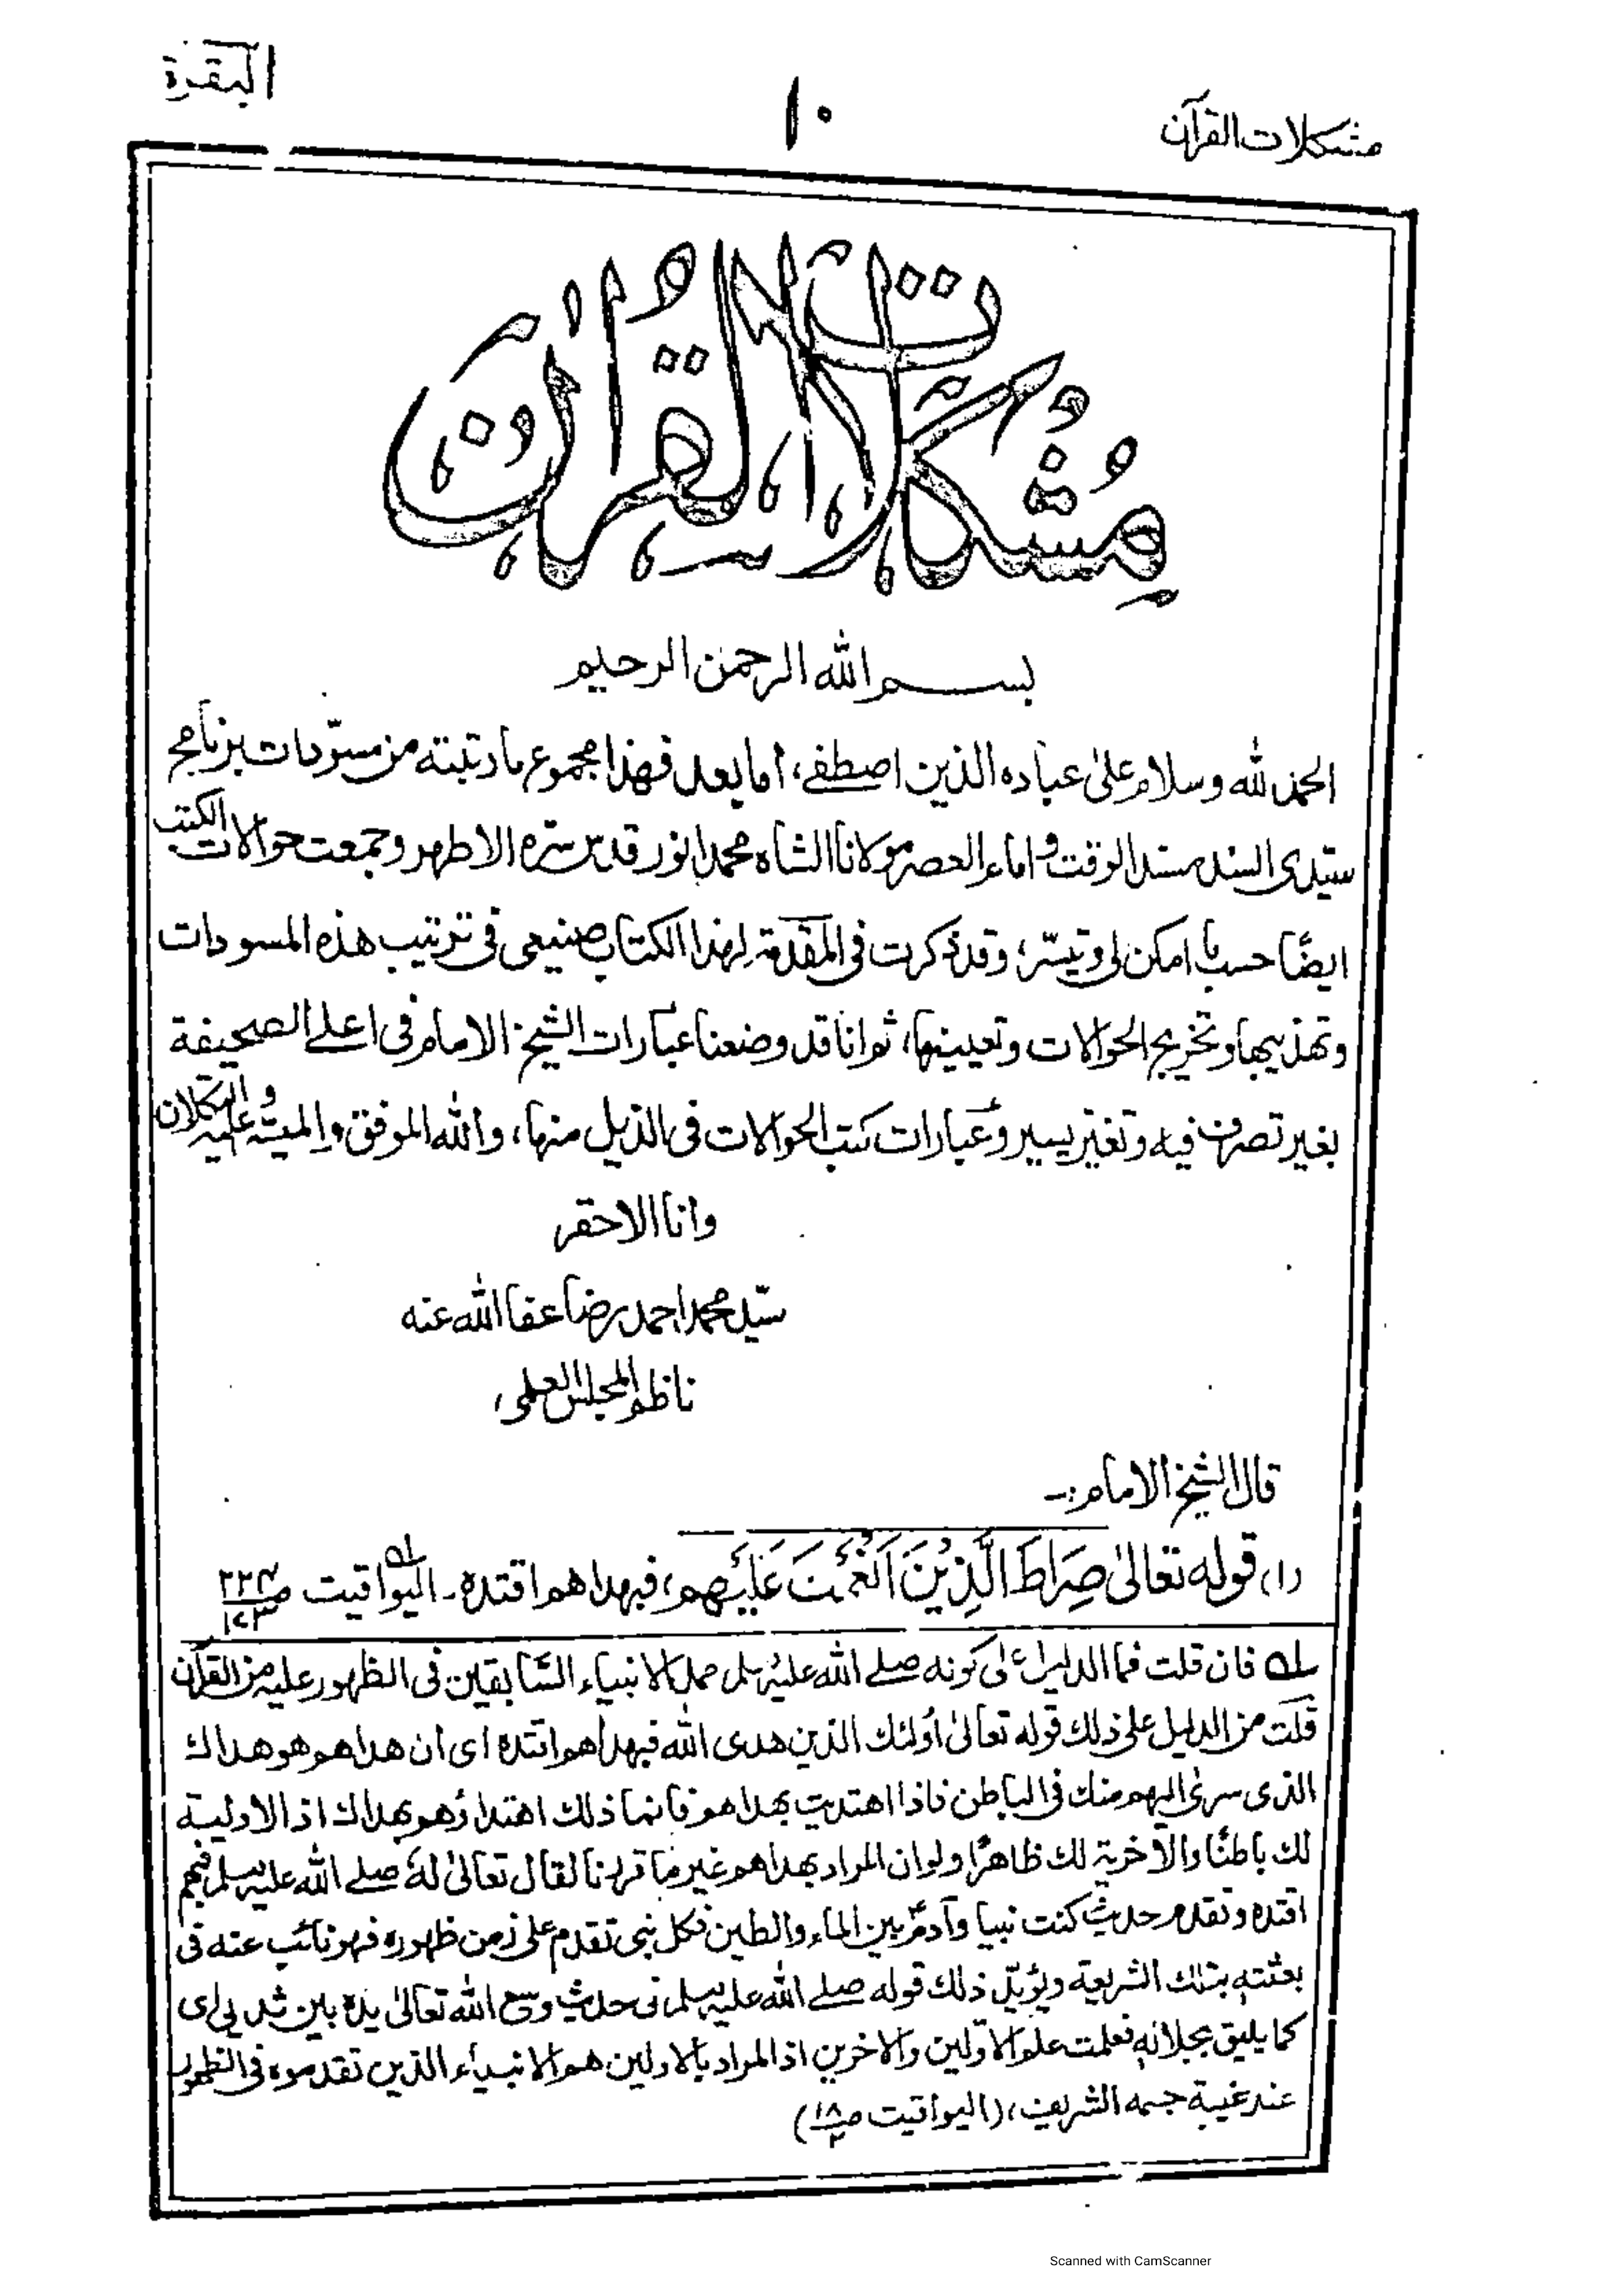 مشکلات القرآن
۱۰
البقرة
مُشْكِلَاتُ الْقُرْاٰنِ
بسم الله الرحمن الرحيم
الحمد لله وسلام علىٰ عباده الذين اصطفے، أما بعد فهذا مجموع ما رتبته من مسوّدات برنامج
سيّدى السند مسند الوقت و امام العصر مولانا الشاه محمد انور قدس سرّه الاطهر وجمعت حوالات الكتب
ايضًا حسب ما امكن لى وتيسّر، وقد ذكرت فى المقدمة لهذا الكتاب صنيعى فى ترتيب هذه المسودات
وتهذيبها وتخريج الحوالات وتعيينها، ثم انا قد وضعنا عبارات الشيخ الامام فى اعلے الصحيفة
بغير تصرف فيه وتغير يسير وعبارات كتب الحوالات فى الذيل منها، والله الموفق والميسّر وعليه التكلان
وانا الاحقر
سيّد محمد احمد رضا عفا الله عنه
ناظم المجلس العلمى،
قال الشيخ الامام:-
(۱) قوله تعالىٰ صِرَاطَ الَّذِيْنَ اَنْعَمْتَ عَلَيْهِم، فبهداهم اقتده۔ اليواقيت ص
لہ فان قلت فما الدليل على كونه صلے الله عليه وسلم ممدّ الانبياء السّابقين فى الظهور عليه من القرآن
قلت من الدليل على ذلك قوله تعالىٰ أولئك الذين هدى الله فبهداهم اقتده اى ان هداهم هو هداك
الذى سرىٰ اليهم منك فى الباطن فاذا اهتديت بهداهم فانما ذلك اهتداؤهم بهداك اذ الاولية
لك باطنًا والآخرية لك ظاهرًا ولو ان المراد بهداهم غير ما قررنا لقال تعالىٰ له صلے الله عليه وسلم فبهم
اقتده وتقدم حديث كنت نبيا وآدم بين الماء والطين فكل نبى تقدم على زمن ظهوره فهو نائب عنه فى
بعثته بتلك الشريعة ويؤيّد ذلك قوله صلے الله عليه وسلم فى حديث وضع الله تعالىٰ يده بين ثديى اى
كما يليق بجلاله فعلمت علم الاوّلين والآخرين اذ المراد بالاولين هم الانبياء الذين تقدموه فى الظهور
عند غيبة جسمه الشريف، (اليواقيت ص ۱۸/۲)
Scanned with CamScanner